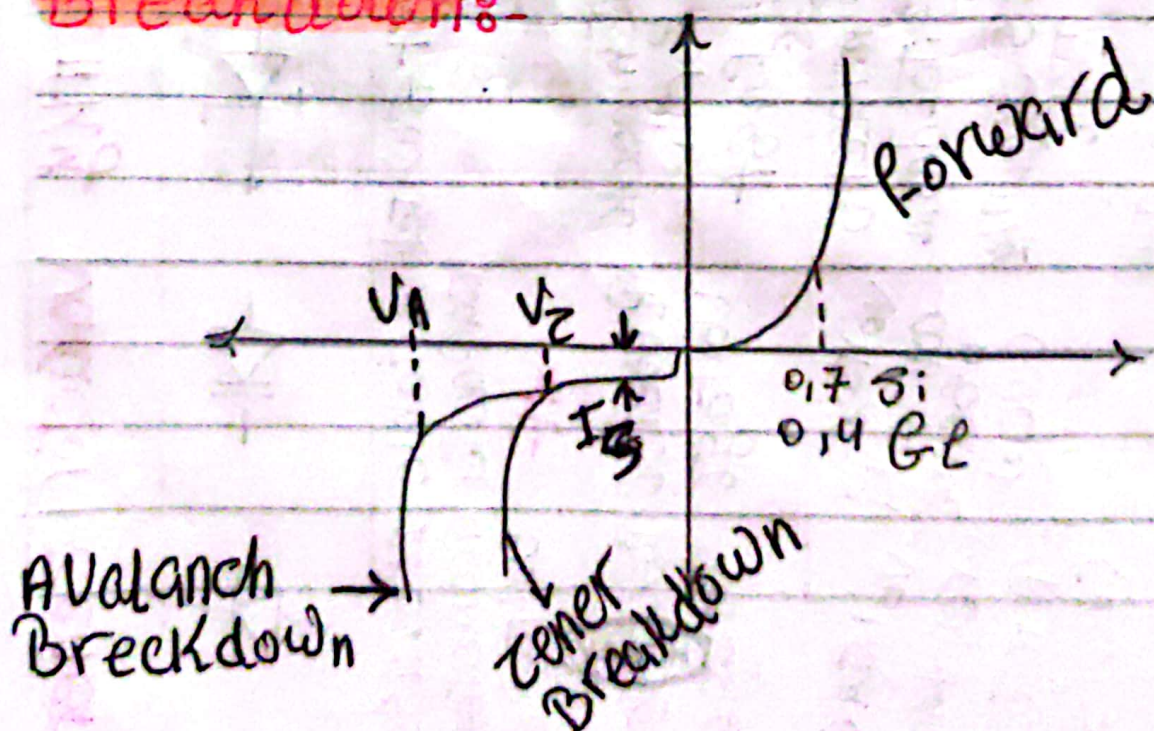 Breakdown:-
Forward
VA
VZ
0,7 Si
0,4 Ge
Avalanch
Breckdown
Zener
Breakdown